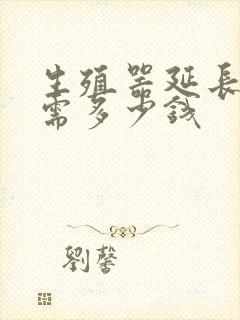 生殖器延長
需多少錢
劉馨